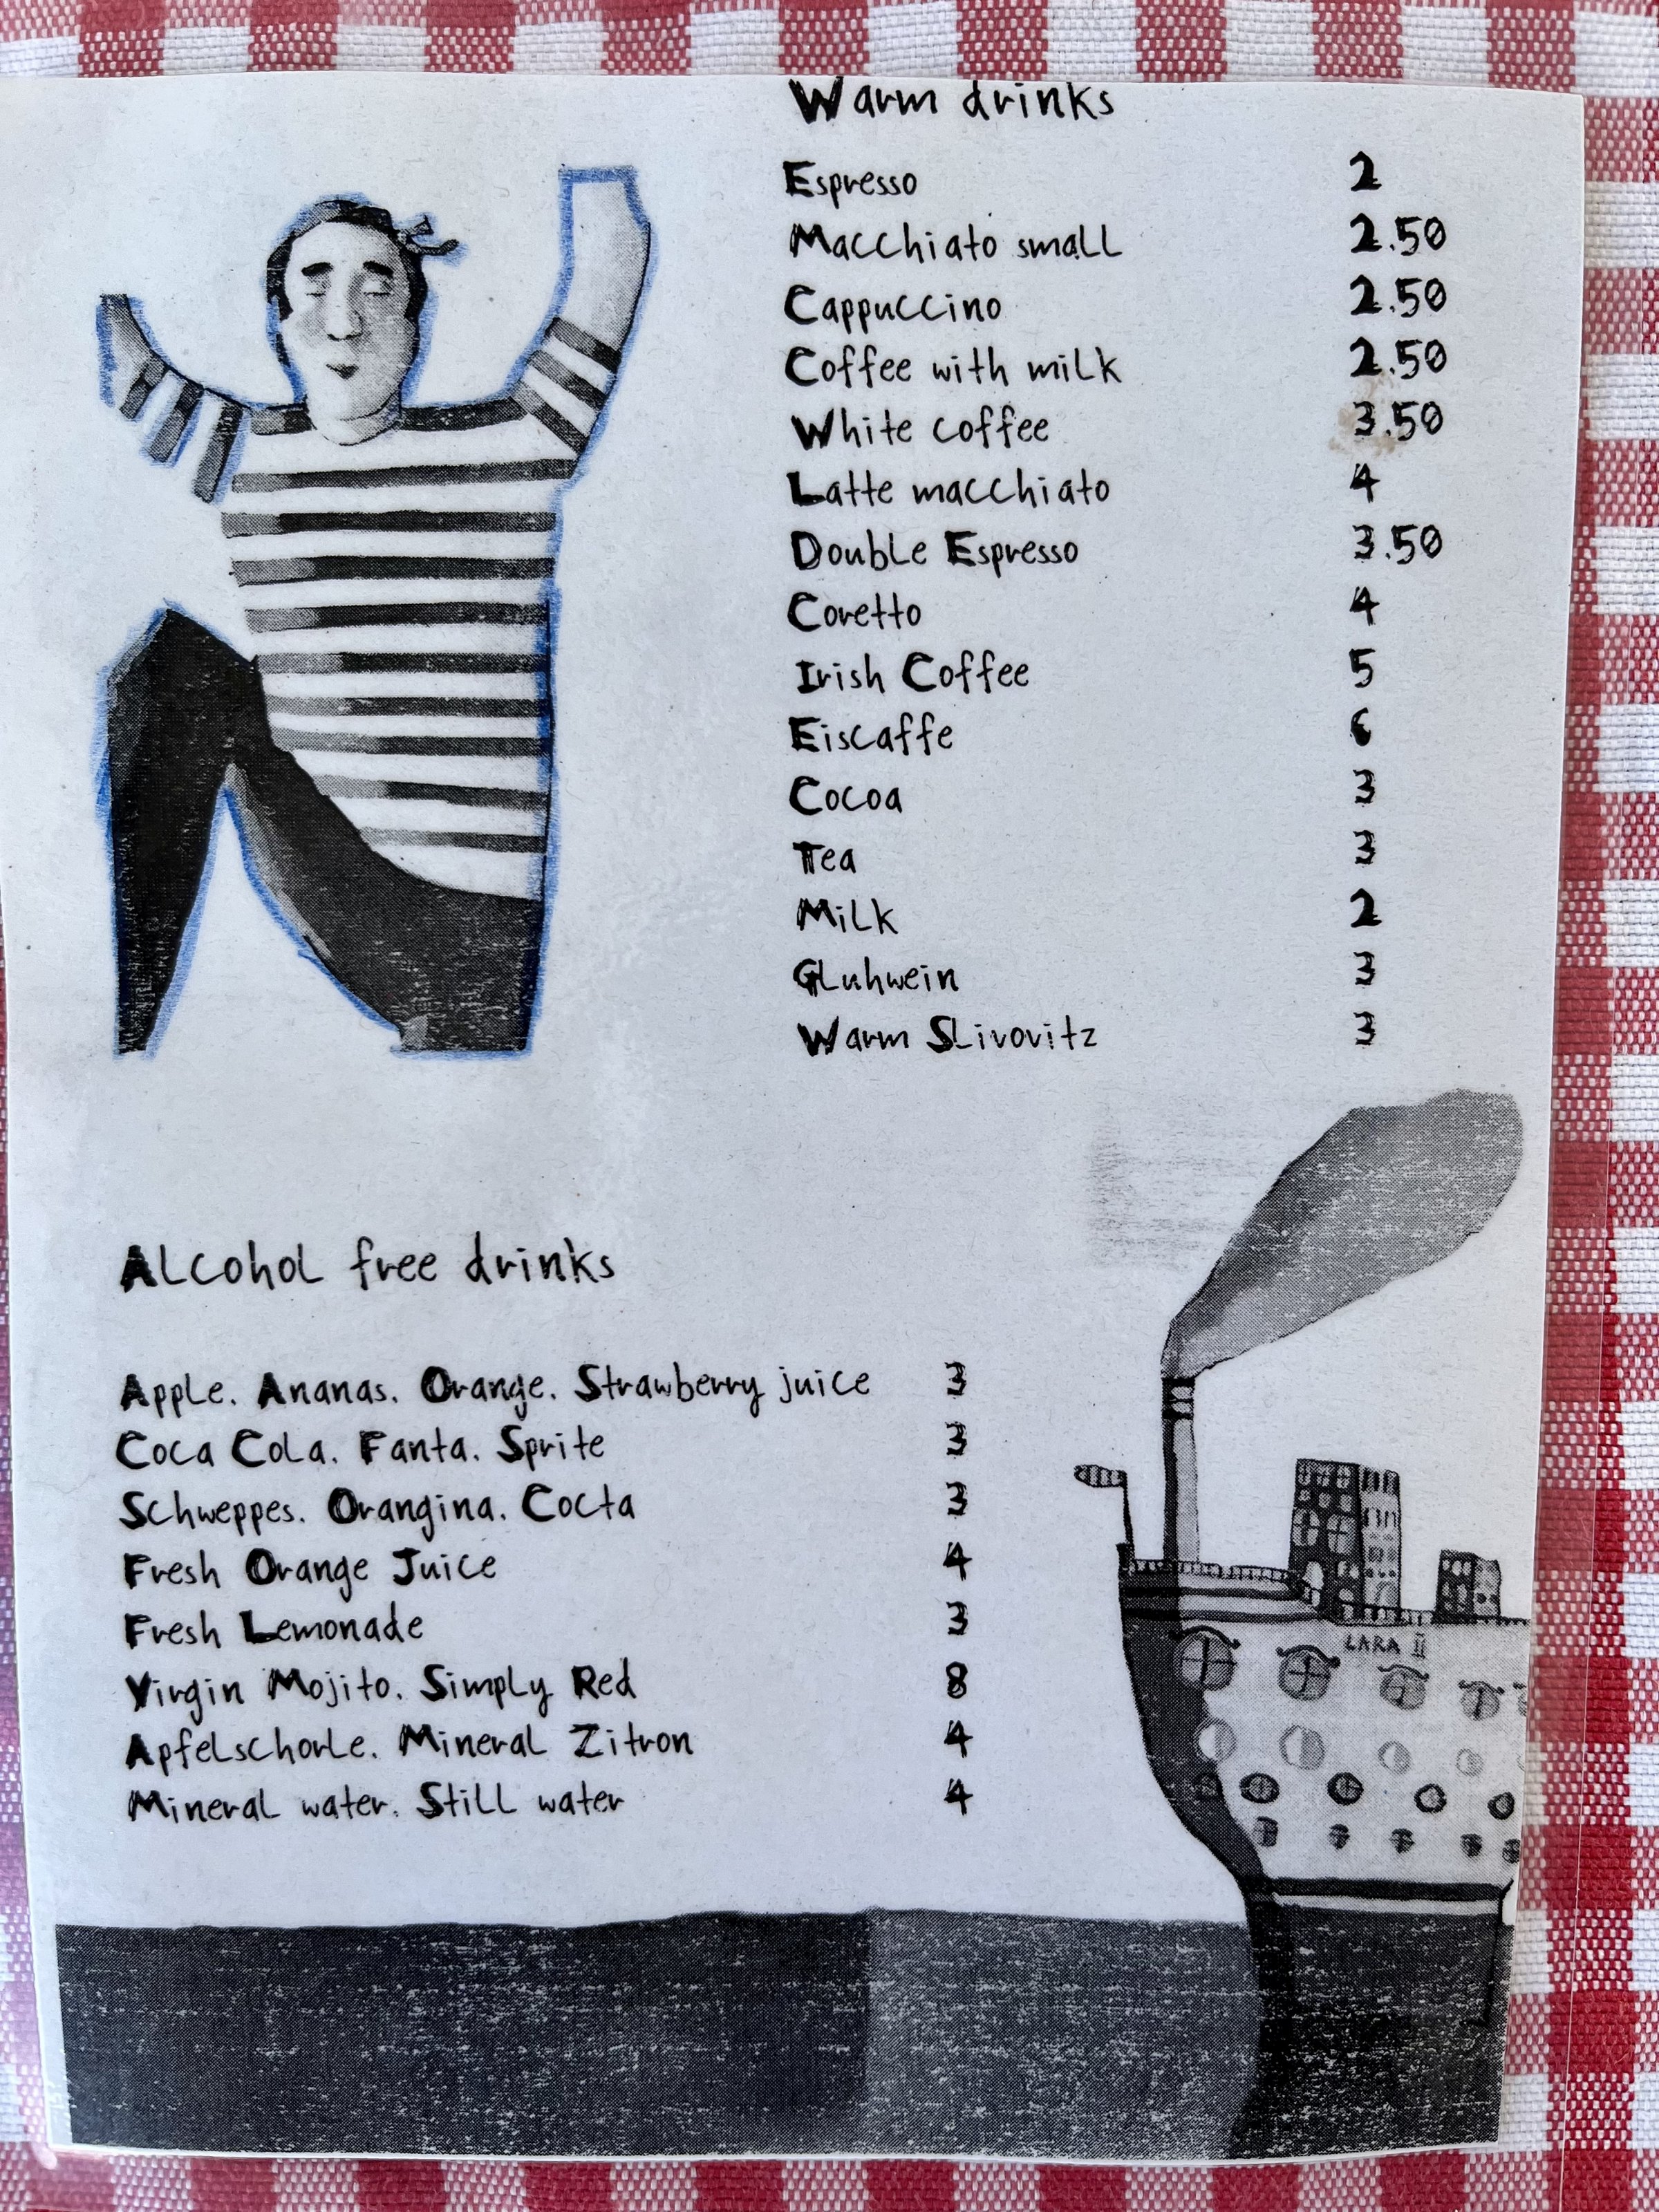 Warm drinks
Espresso 2
Macchiato small 2.50
Cappuccino 2.50
Coffee with milk 2.50
White coffee 3.50
Latte macchiato 4
Double Espresso 3.50
Coretto 4
Irish Coffee 5
Eiscaffe 6
Cocoa 3
Tea 3
Milk 2
Gluhwein 3
Warm Slivovitz 3
Alcohol free drinks
Apple. Ananas. Orange. Strawberry juice 3
Coca Cola. Fanta. Sprite 3
Schweppes. Orangina. Cocta 3
Fresh Orange Juice 4
Fresh Lemonade 3
Virgin Mojito. Simply Red 8
Apfelschorle. Mineral Zitron 4
Mineral water. Still water 4
LARA II